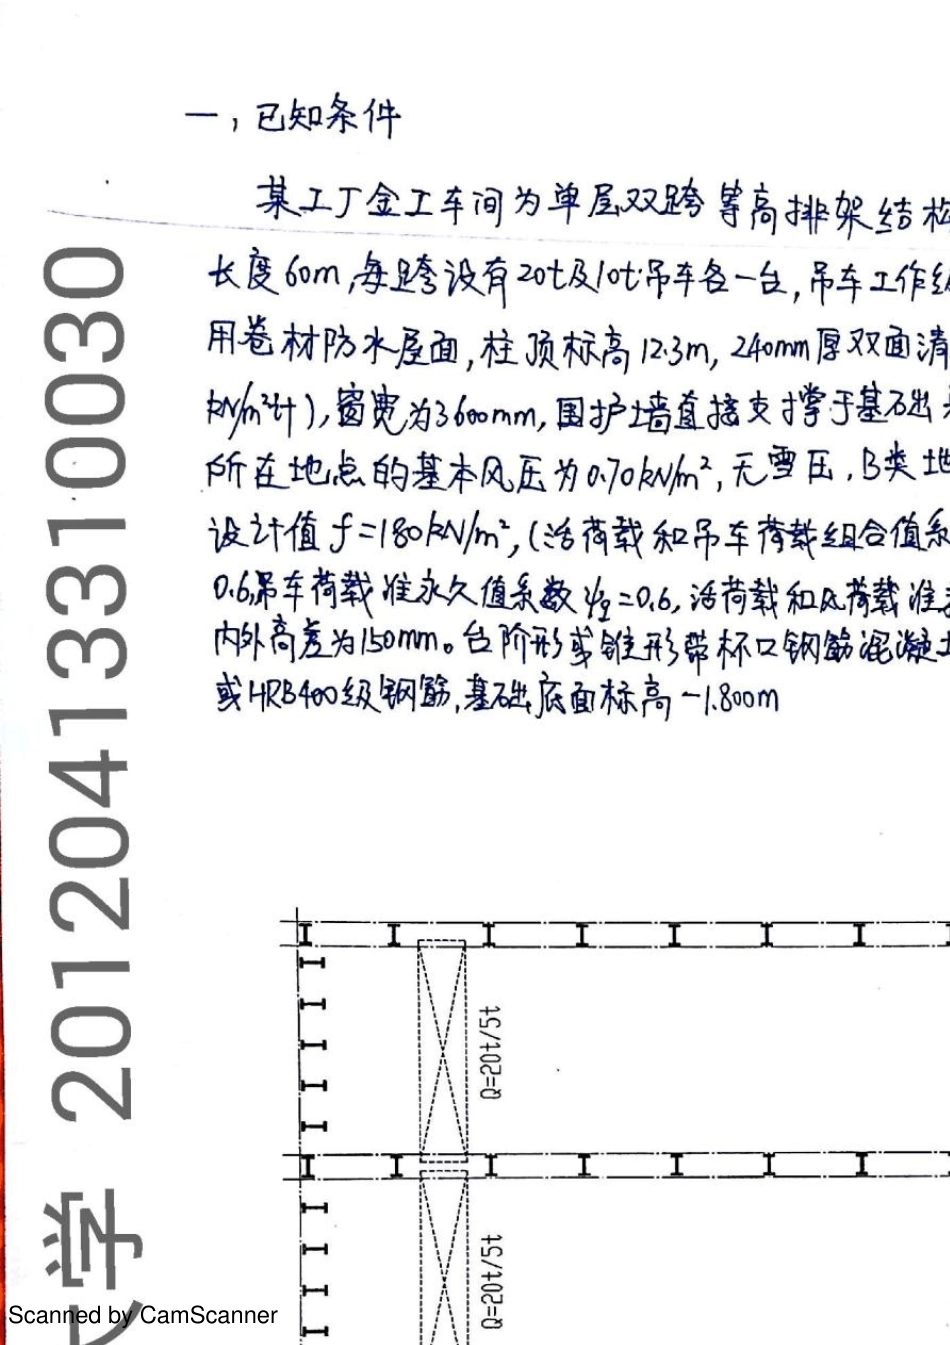 一，已知条件
某工厂金工车间为单层双跨等高排架结构
长度60m,每跨设有20t及10t吊车各一台,吊车工作级
用卷材防水屋面,柱顶标高12.3m,240mm厚双面清
kN/m²计),窗宽为3600mm,围护墙直接支撑于基础
所在地点的基本风压为0.70kN/m²,无雪压,B类地
设计值f=180kN/m²,(活荷载和吊车荷载组合值系
0.6,吊车荷载准永久值系数ψq=0.6,活荷载和风荷载准
内外高差为150mm。台阶形或锥形带杯口钢筋混凝土
或HRB400级钢筋,基础底面标高-1.800m
Q=20/10t/5t
Q=20/10t/5t
学 2012041331 0030
Scanned by CamScanner